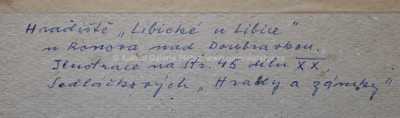 Hradiště „Libické u Libice"
u Ronova nad Doubravkou.
Ilustrace na str. 45 dílu XX
Sedláčkových „Hrady a zámky"